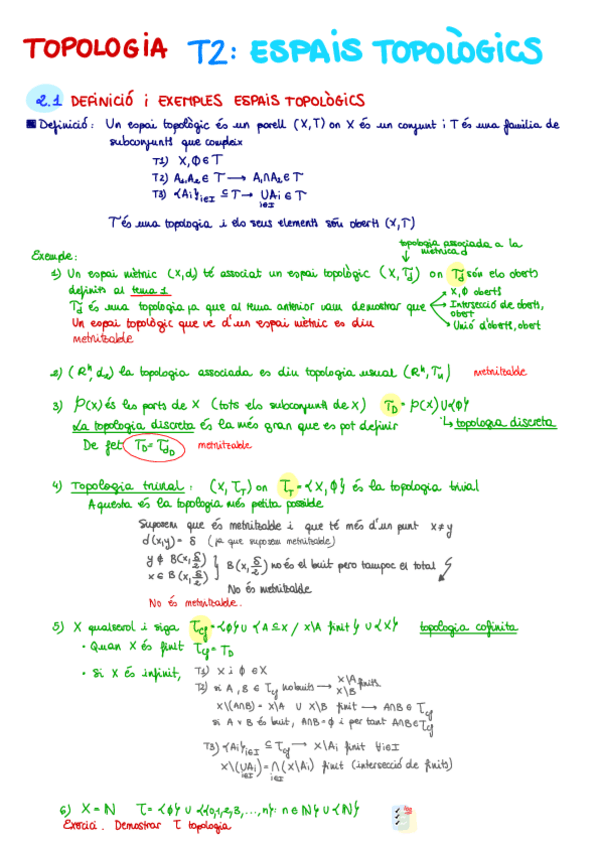 TOPOLOGIA T2: ESPAIS TOPOLÒGICS
2.1 DEFINICIÓ i EXEMPLES ESPAIS TOPOLÒGICS
Definició: Un espai topològic és un parell (X,T) on X és un conjunt i T és una família de
subconjunts que compleix
T1) X, ∅ ∈ T
T2) A₁,A₂ ∈ T → A₁∩A₂ ∈ T
T3) {Ai}i∈I ⊆ T → ∪Ai ∈ T
i∈I
T és una topologia i els seus elements són oberts (X,T)
topologia associada a la
mètrica d
Exemple:
1) Un espai mètric (X,d) té associat un espai topològic (X,Td) on Td són els oberts
definits al tema 1
X, ∅ oberts
Td és una topologia ja que al tema anterior vam demostrar que
Intersecció de oberts,
obert
Unió d'oberts, obert
Un espai topològic que ve d'un espai mètric es diu
metritzable
2) (Rⁿ, de) la topologia associada es diu topologia usual (Rⁿ,Tu) metritzable
3) P(X) és les parts de X (tots els subconjunts de X) TD = P(X)∪{∅}
↳ topologia discreta
La topologia discreta és la més gran que es pot definir
De fet TD = TdD metritzable
4) Topologia trivial: (X,TT) on TT = {X,∅} és la topologia trivial
Aquesta és la topologia més petita possible
Suposem que és metritzable i que té més d'un punt x≠y
d(x,y) = δ (ja que suposem metritzable)
y ∉ B(x,δ/2)
x ∈ B(x,δ/2)
B(x,δ/2) no és el buit pero tampoc el total
No és metritzable
No és metritzable.
5) X qualsevol i sigui Tcf = {∅} ∪ {A⊆X / X\A finit} ∪ {X} topologia cofinita
• Quan X és finit Tcf = TD
• Si X és infinit,
T1) X i ∅ ∈ X
T2) si A, B ∈ Tcf no buits → X\A X\B finits
X\(A∩B) = X\A ∪ X\B finit → A∩B ∈ Tcf
si A o B és buit, A∩B=∅ i per tant A∩B∈Tcf
T3) {Ai}i∈I ⊆ Tcf → X\Ai finit ∀i∈I
X\(∪Ai) = ∩(X\Ai) finit (intersecció de finits)
i∈I i∈I
6) X = N T = {∅} ∪ {{0,1,2,3,...,n}: n∈N} ∪ {N}
Exercici. Demostrar T topologia